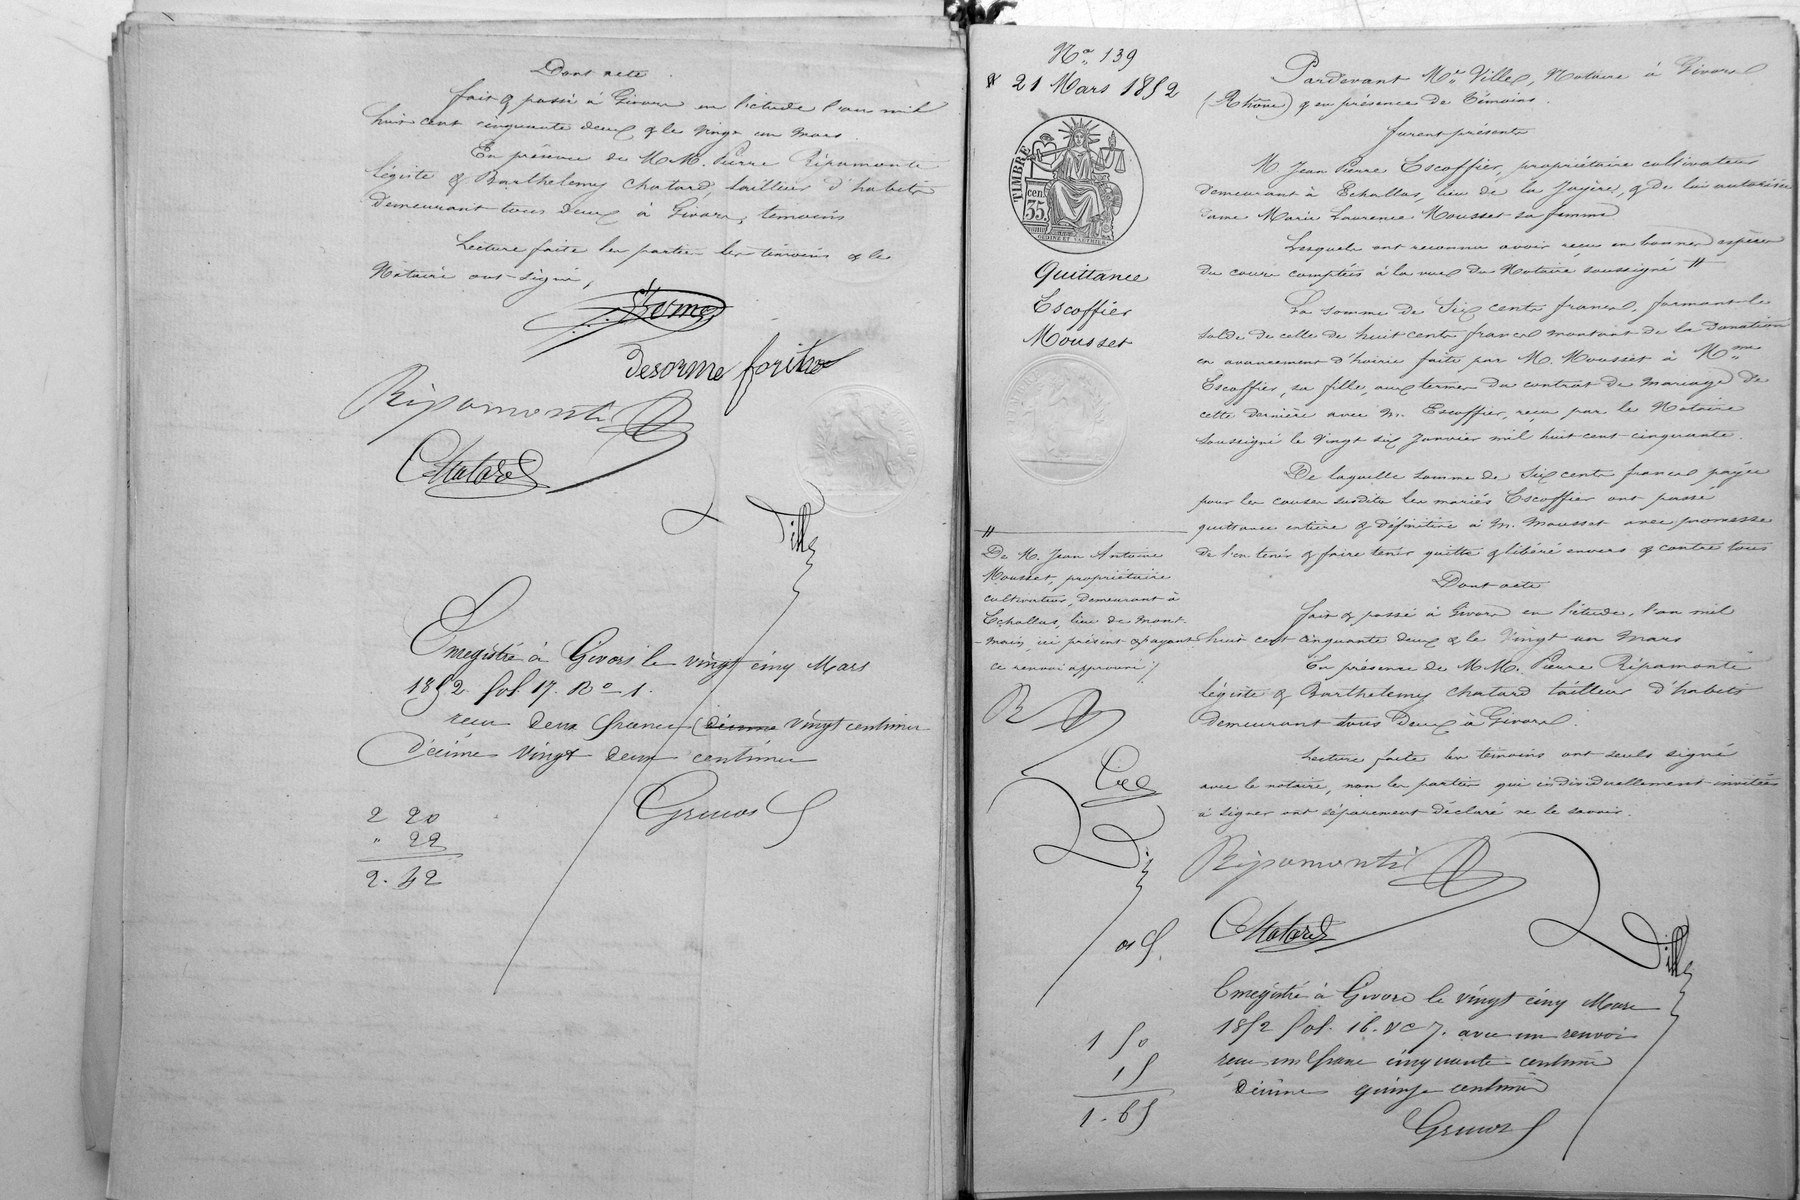 Dont acte
fait & passé à Givors en l'étude l'an mil
huit cent cinquante deux & le vingt un mars
En présence de M.M. Pierre Ripamonti
légiste & Barthelemy Chatard, tailleur d'habits
demeurant tous deux à Givors, témoins
Lecture faite les parties les témoins & le
Notaire ont signé,
desorme
Ripamonti
Chatard
Ville
Enregistré à Givors le vingt cinq Mars
1852 fol. 17. Ro 1.
reçu deux francs vingt centimes
Décime vingt deux centimes
2 20
" 22
2. 42
No. 139
21 Mars 1852
TIMBRE
35 cen.
Quittance
Escoffier
Mousset
Pardevant Me. Ville, Notaire à Givors
(Rhône) & en présence de Témoins.
furent présents
M. Jean Pierre Escoffier, propriétaire cultivateur
demeurant à Echallas, lieu de la Jayère, & de lui autorisée
dame Marie Laurence Mousset sa femme
Lesquels ont reconnu avoir reçu en bonnes espèces
du cours comptées à la vue du Notaire soussigné //
La somme de Six cents francs, formant le
solde de celle de huit cents francs montant de la donation
en avancement d'hoirie faite par M. Mousset à Mme
Escoffier, sa fille, aux termes du contrat de mariage de
cette dernière avec M. Escoffier, reçu par le Notaire
soussigné le vingt six Janvier mil huit cent cinquante.
De laquelle somme de Six cents francs payée
pour les causes susdites les mariés Escoffier ont passé
quittance entière & définitive à M. Mousset avec promesse
de l'en tenir & faire tenir quitte & libéré envers & contre tous
Dont acte
fait & passé à Givors en l'étude, l'an mil
huit cent cinquante deux & le vingt un mars
En présence de M.M. Pierre Ripamonti
légiste & Barthelemy Chatard tailleur d'habits
demeurant tous deux à Givors.
Lecture faite les témoins ont seuls signé
avec le notaire, non les parties qui individuellement invitées
à signer ont séparément déclaré ne le savoir.
//
De M. Jean Antoine
Mousset, propriétaire
cultivateur, demeurant à
Echallas, lieu de Mont-
main, ici présent & payant
ce renvoi approuvé /.
Ripamonti
Chatard
Ville
Enregistré à Givors le vingt cinq Mars
1852 fol. 16. vo c 7. avec un renvoi
reçu un franc cinquante centimes
Décime quinze centimes
1 50
15
1. 65